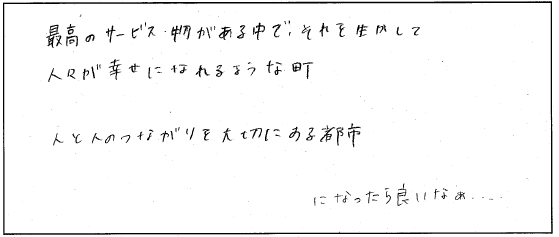 最高のサービス・物がある中で、それを生かして
人々が幸せになれるような町
人と人のつながりを大切にある都市
になったら良いなぁ....